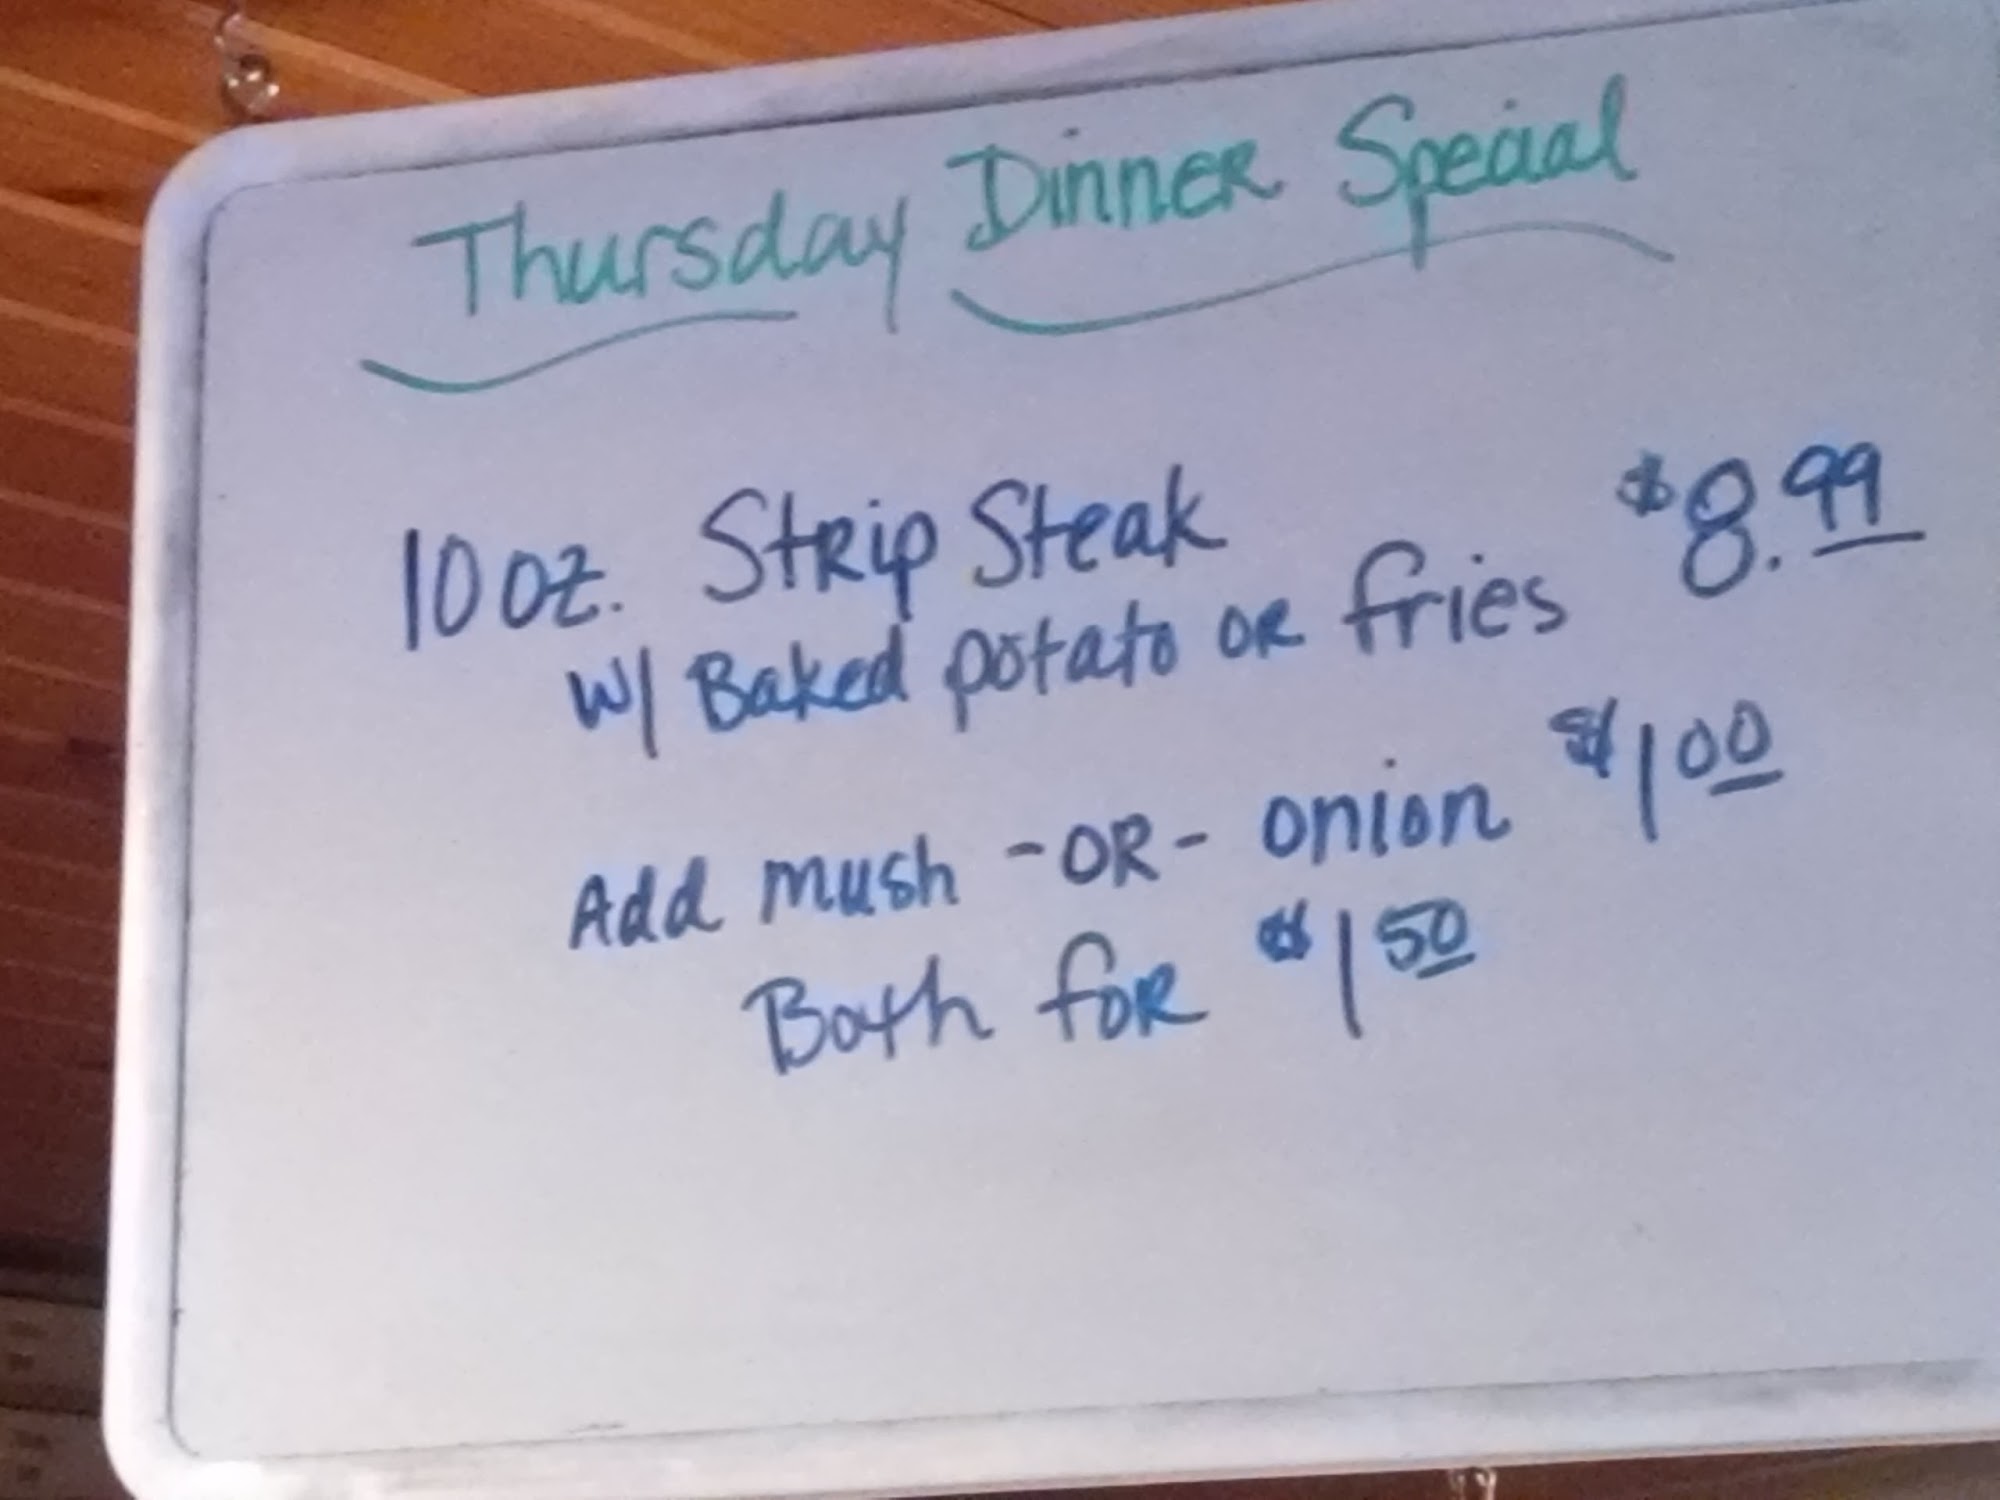 Thursday Dinner Special
10 oz. Strip Steak
w/ Baked potato or fries $8.99
Add mush -OR- onion $1 00
Both for $1 50